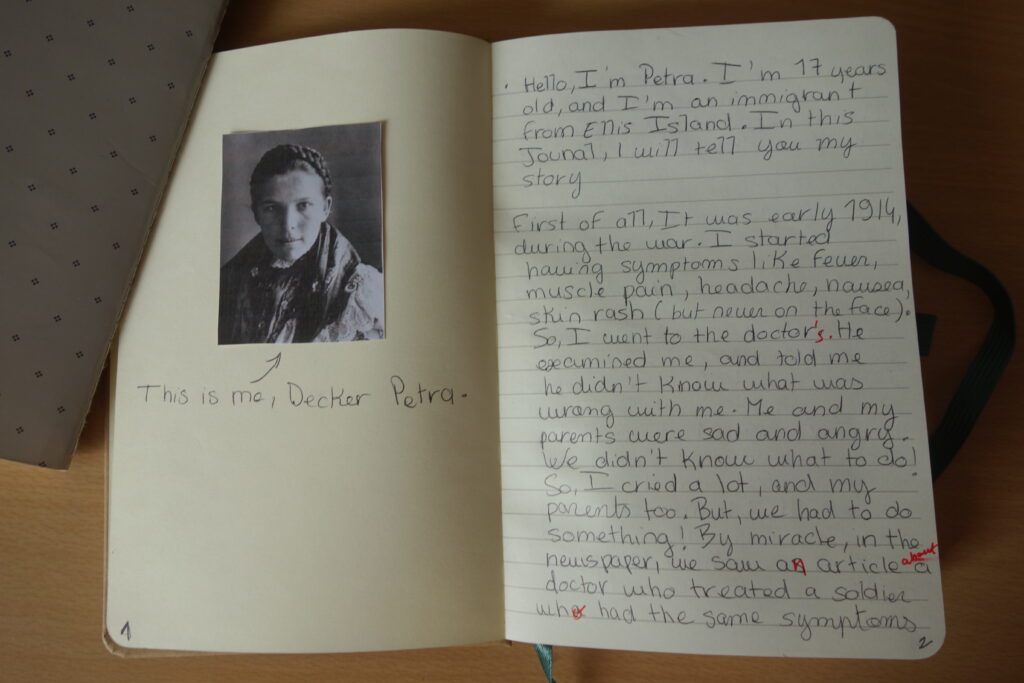 This is me, Decker Petra.
1
Hello, I'm Petra. I'm 17 years
old, and I'm an immigrant
from Ellis Island. In this
Jounal, I will tell you my
story
First of all, It was early 1914,
during the war. I started
having symptoms like fever,
muscle pain, headache, nausea,
skin rash (but never on the face).
So, I went to the doctor's. He
examined me, and told me
he didn't know what was
wrong with me. Me and my
parents were sad and angry.
We didn't know what to do!
So, I cried a lot, and my
parents too. But, we had to do
something! By miracle, in the
newspaper, we saw an article about a
doctor who treated a soldier
who had the same symptoms
2